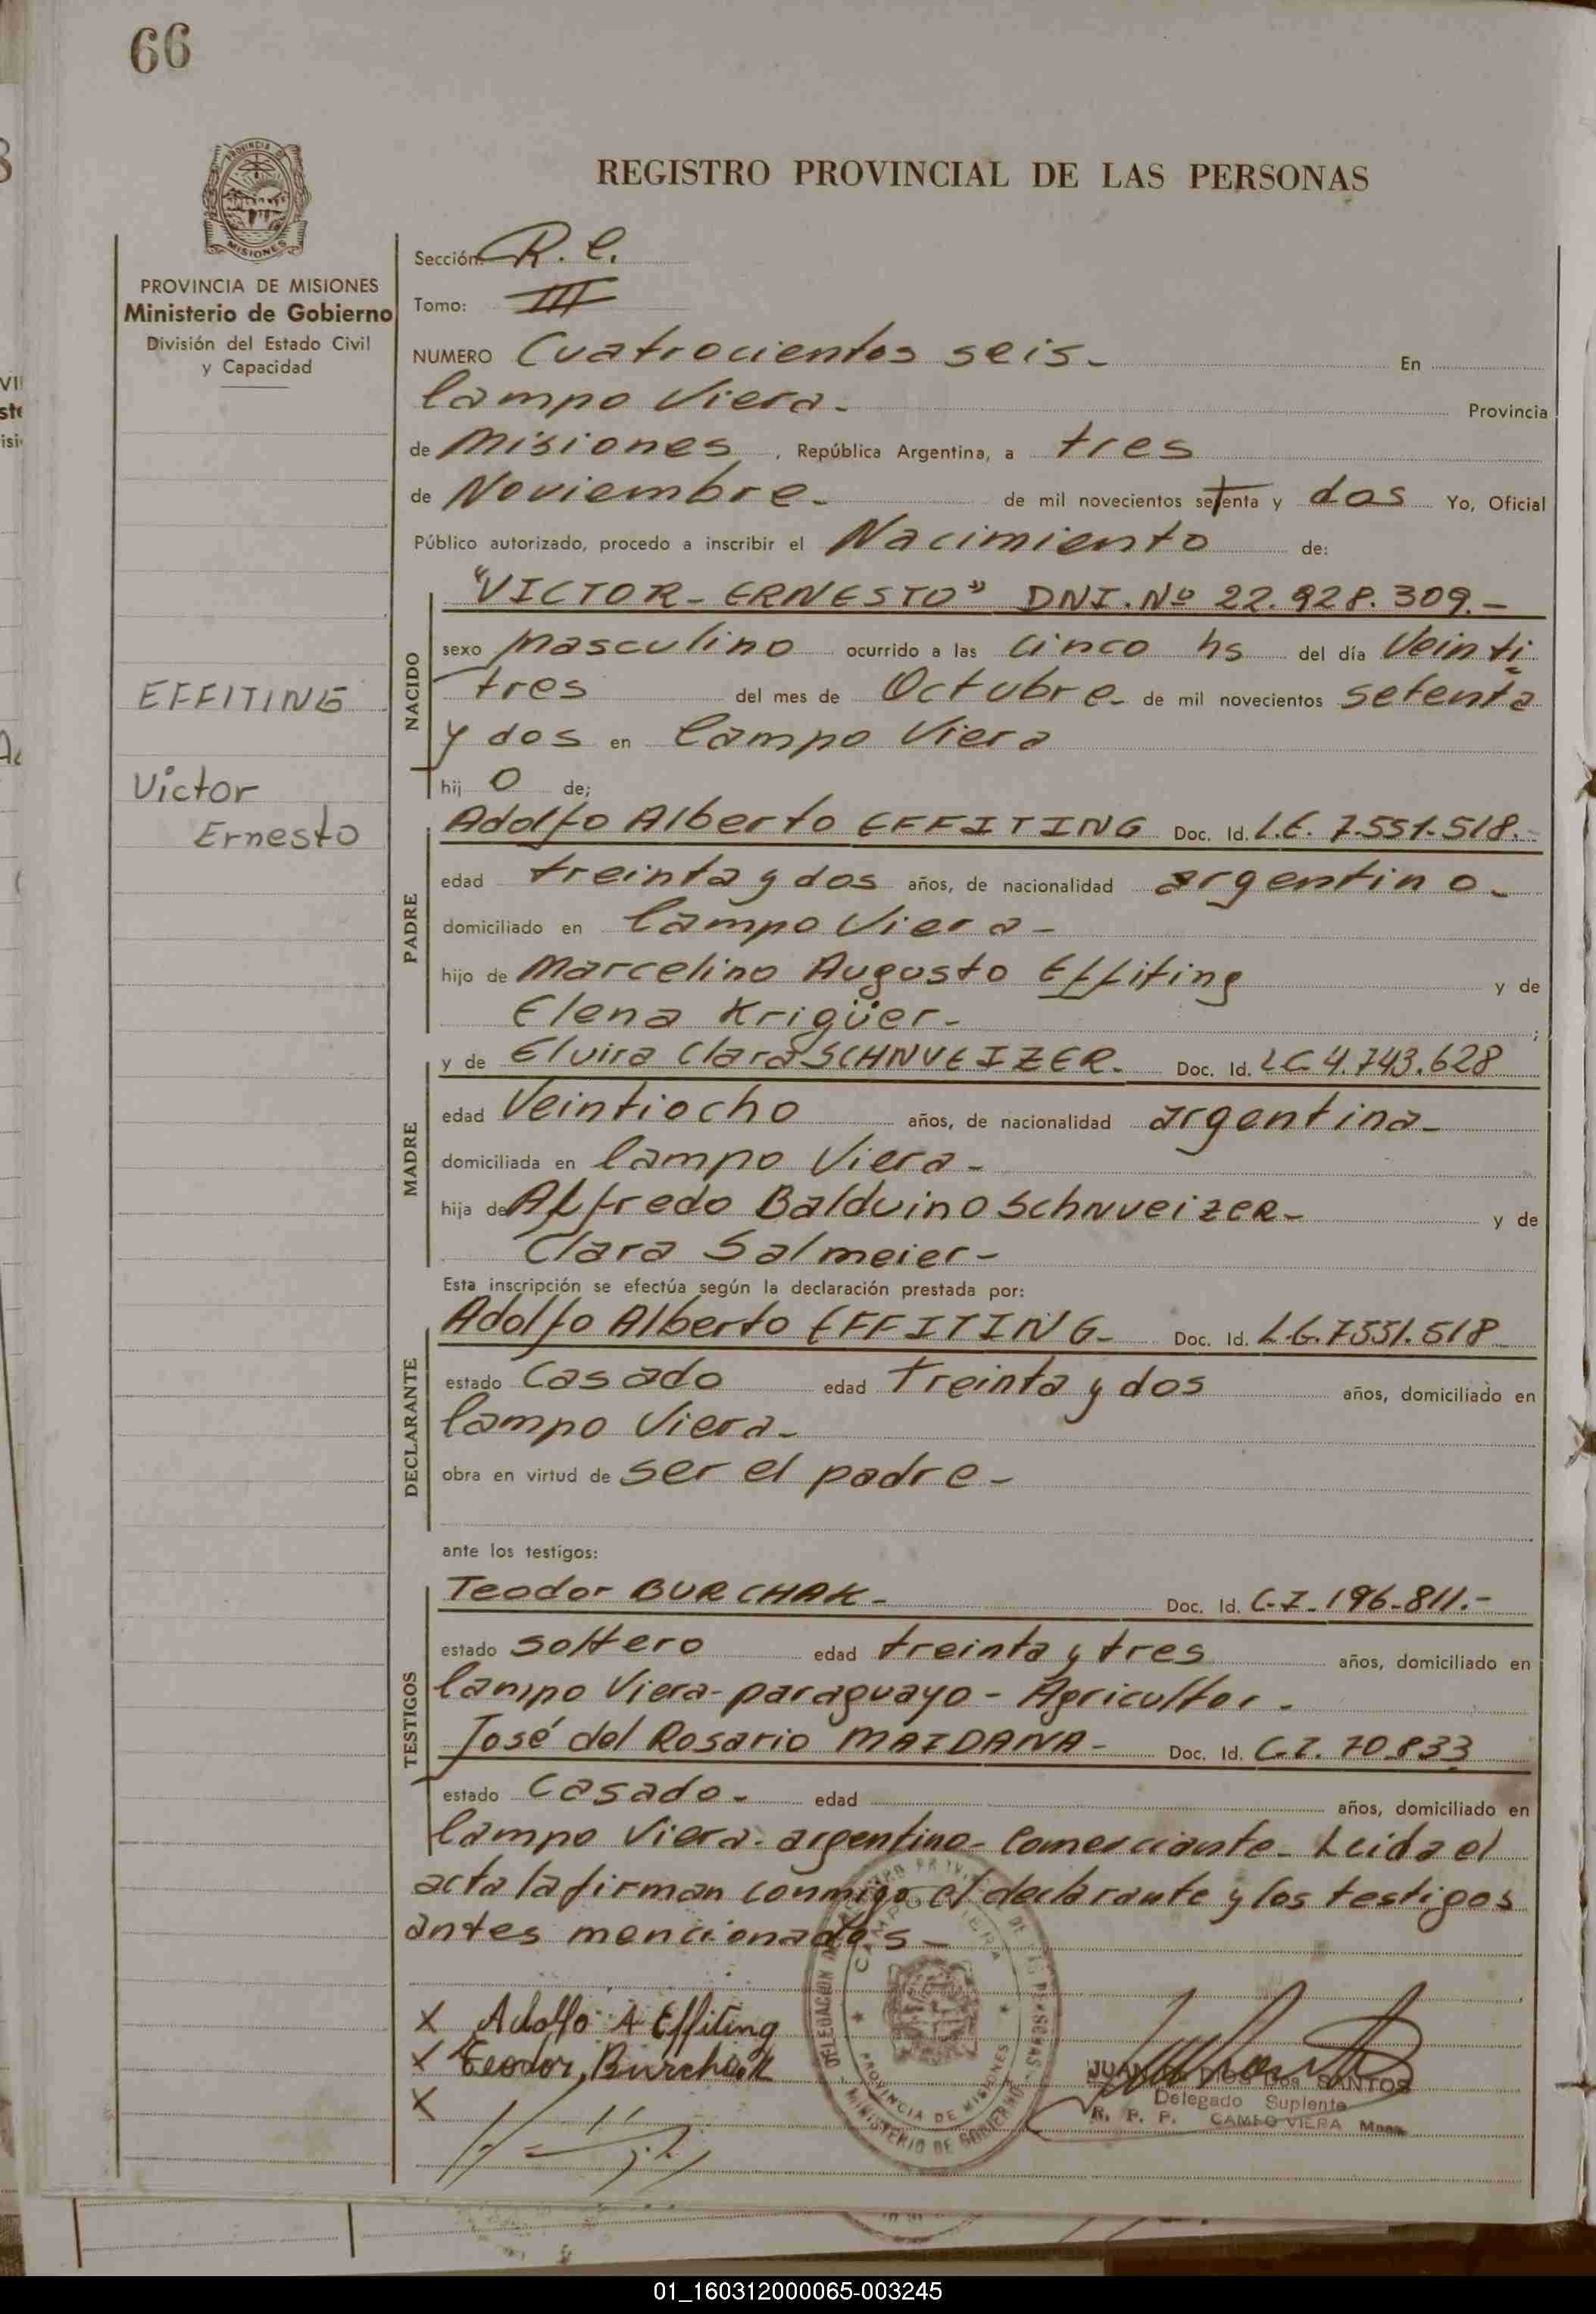 66
REGISTRO PROVINCIAL DE LAS PERSONAS
PROVINCIA DE MISIONES
Ministerio de Gobierno
División del Estado Civil
y Capacidad
EFFITING
Victor
Ernesto
Sección: R. C.
Tomo: III
NUMERO Cuatrocientos seis- En
Campo Viera- Provincia
de Misiones, República Argentina, a tres
de Noviembre- de mil novecientos setenta y dos Yo, Oficial
Público autorizado, procedo a inscribir el Nacimiento de:
NACIDO
"VICTOR-ERNESTO" DNI. Nº 22.928.309.-
sexo masculino ocurrido a las cinco hs del día Veinti
tres del mes de Octubre- de mil novecientos setenta
y dos en Campo Viera
hij o de;
PADRE
Adolfo Alberto EFFITING Doc. Id. L.E. 7.551.518.-
edad treinta y dos años, de nacionalidad argentino-
domiciliado en Campo Viera-
hijo de Marcelino Augusto Effiting y de
Elena Krigüer-
MADRE
y de Elvira Clara SCHNVEIZER- Doc. Id. LC 4.743.628
edad Veintiocho años, de nacionalidad argentina-
domiciliada en Campo Viera-
hija de Alfredo Balduino SchnveizeR- y de
Clara Salmeier-
Esta inscripción se efectúa según la declaración prestada por:
DECLARANTE
Adolfo Alberto EFFITING- Doc. Id. L.E. 7551.518
estado Casado edad Treinta y dos años, domiciliado en
Campo Viera-
obra en virtud de ser el padre-
ante los testigos:
TESTIGOS
Teodor BURCHAK- Doc. Id. C.I. 196.811.-
estado soltero edad treinta y tres años, domiciliado en
Campo Viera- paraguayo- Agricultor-
José del Rosario MAIDANA- Doc. Id. C.I. 70.833
estado Casado- edad años, domiciliado en
Campo Viera- argentino- Comerciante- Leida el
acta la firman conmigo el declarante y los testigos
antes mencionados-
X Adolfo A Effiting
X Teodor, Burchak
X
JUAN DE DIOS Dos SANTOS
Delegado Suplente
R. P. P. CAMPO VIERA Mnes.
CAMPO VIERA
PROVINCIA DE MISIONES
MINISTERIO DE GOBIERNO
01_160312000065-003245